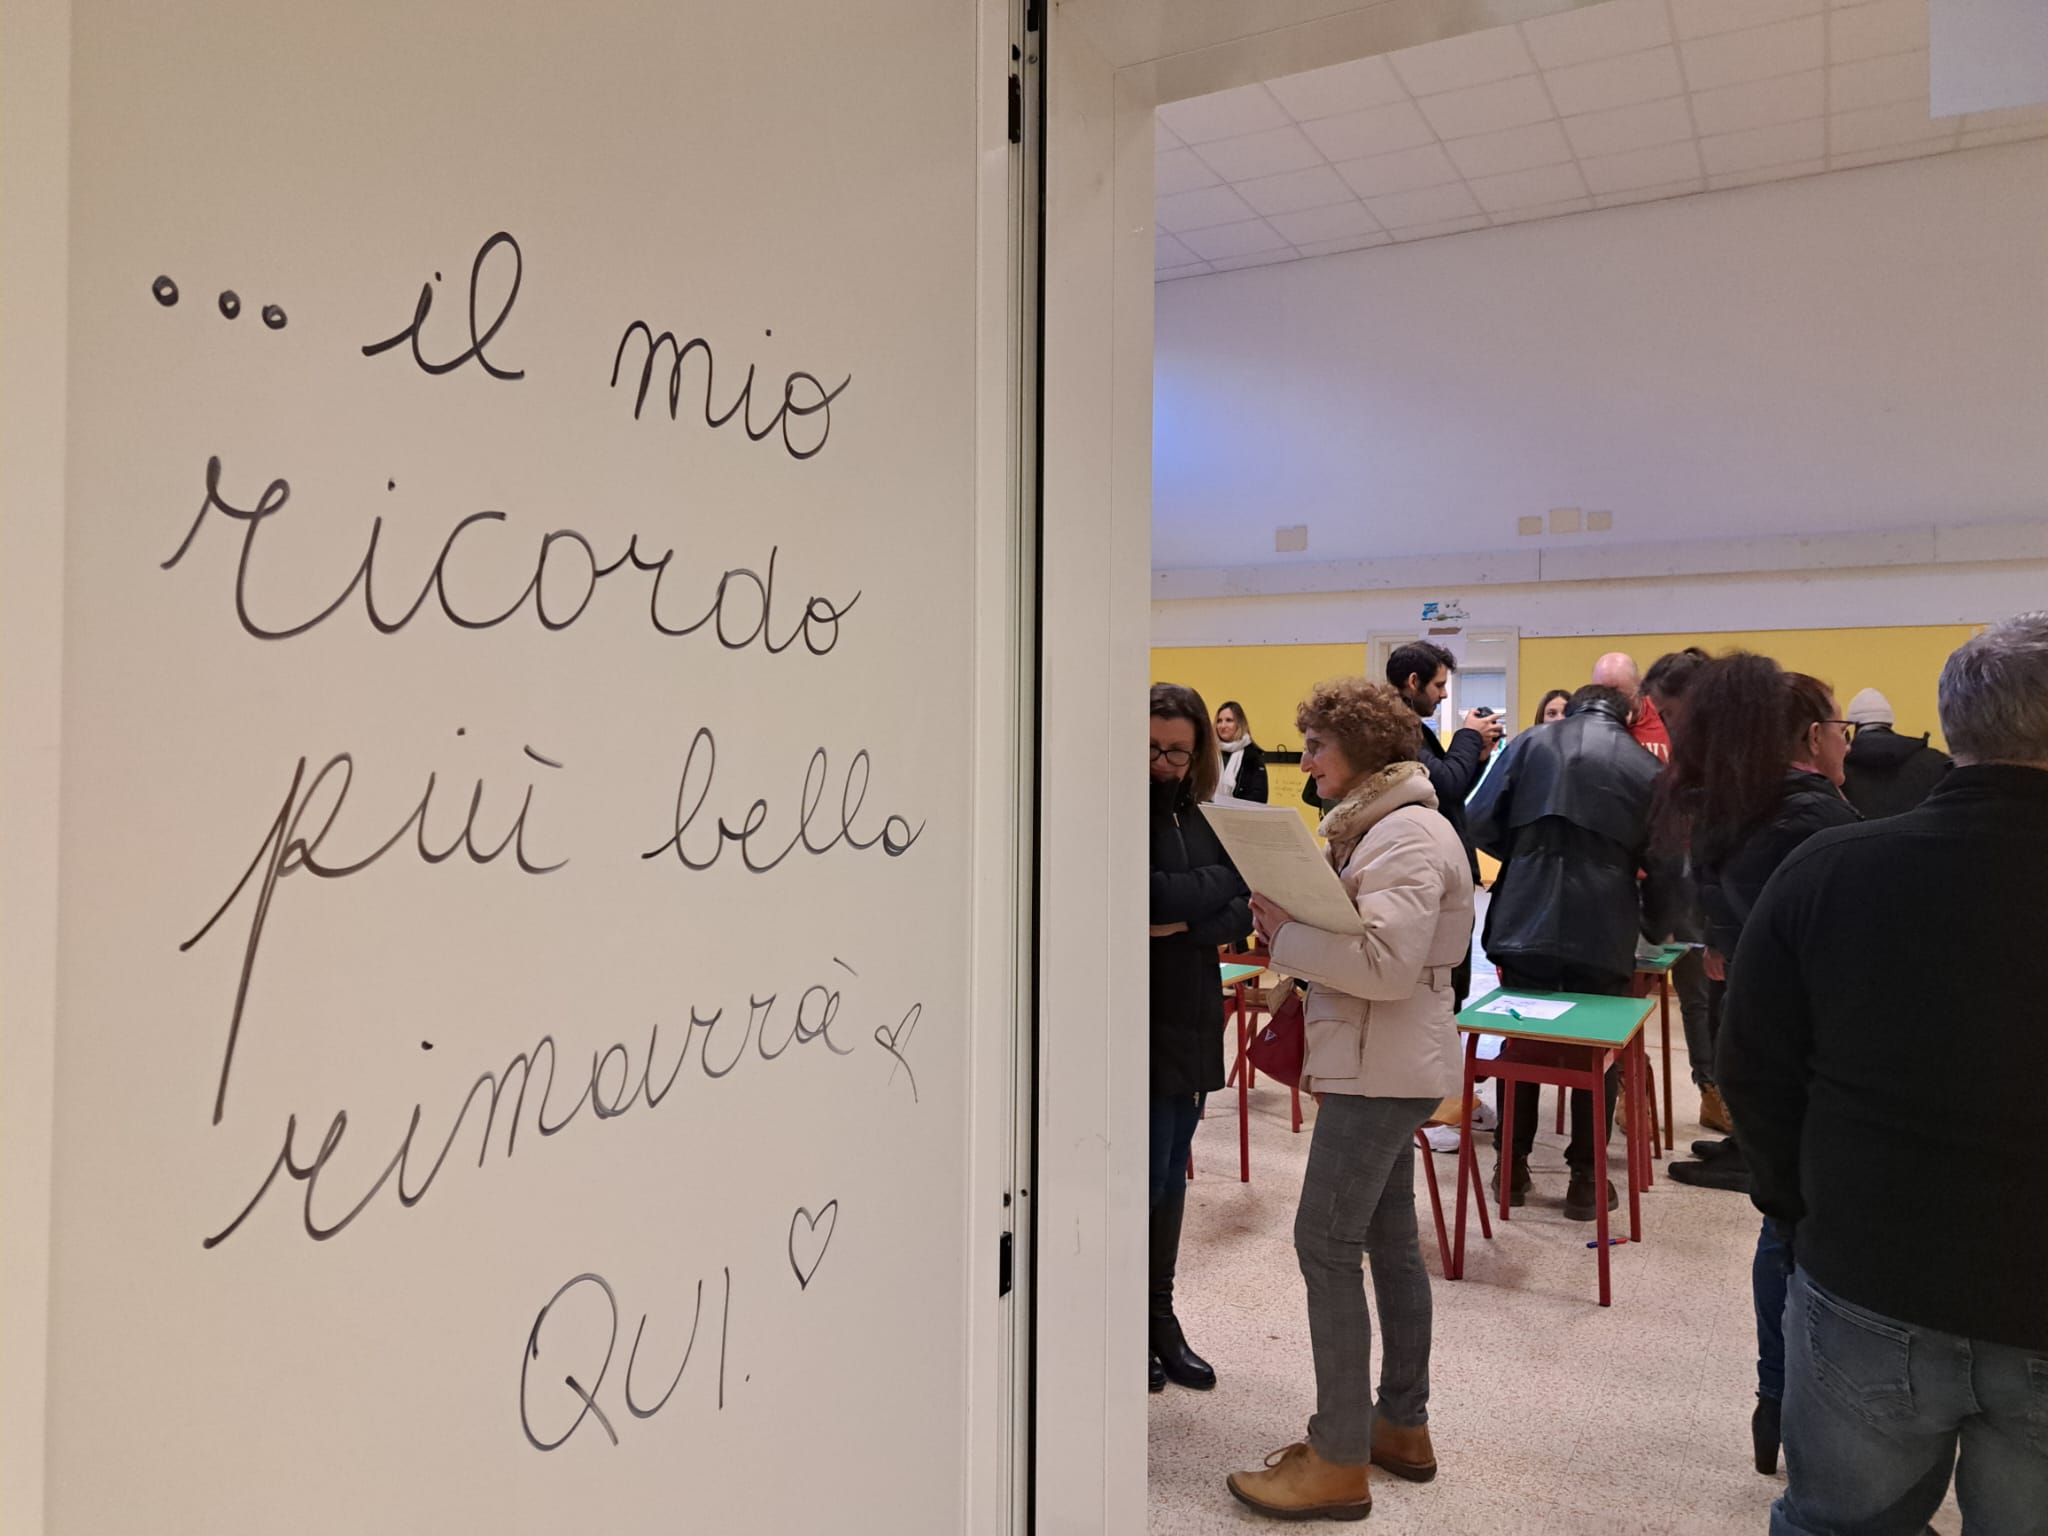 ... il mio
ricordo
più bello
rimarrà
QUI.